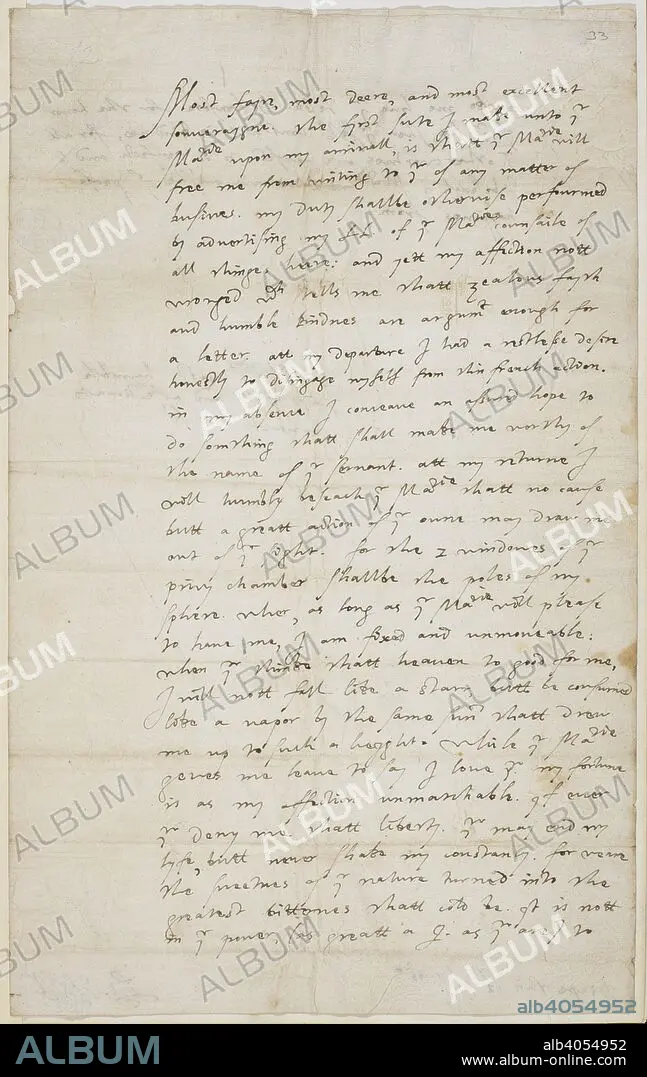 33
Most fayre, most deere, and most excellent
souveraygne. the first sute I make unto yr
Matie upon my arrivall, is thatt yr Matie will
free me from writing to yr of any matter of
busines. my duty shallbe otherwise perfourmed
by advertising my of yr Maties counsaile of
all things here: and yett my affection nott
wronged wch tells me thatt zealous fayth
and humble kindnes are argumt enough for
a letter. att my departure I had a restlesse desire
honestly to disingage myself from this french action.
in my absence I conceave an assured hope to
do somthing thatt shall make me worthy of
the name of yr servant. att my returne I
will humbly beseach yr Matie thatt no cause
butt a greatt action of yr owne may draw me
out of yr sight. for the 2 windowes of yr
privy chamber shallbe the poles of my
sphere. wher, as long as yr Matie will please
to have me, I am fixed and unmoveable:
when yr thinke thatt heaven to good for me,
I will nott fall like a starr butt be consumed
like a vapor by the same sun thatt drew
me up to such a height. While yr Matie
geves me leave to say I love yr. my fortune
is as my affection unmatchable. yf ever
yr deny me thatt liberty. yr may end my
lyfe, butt never shake my constancy. for weare
the sweetnes of yr nature turned into the
greatest bitternes thatt cold be. yt is nott
in yr power, (as greatt a Q. as yr are) to
ALBUM
alb4054952
ALBUM
alb4054952
www.album-online.com